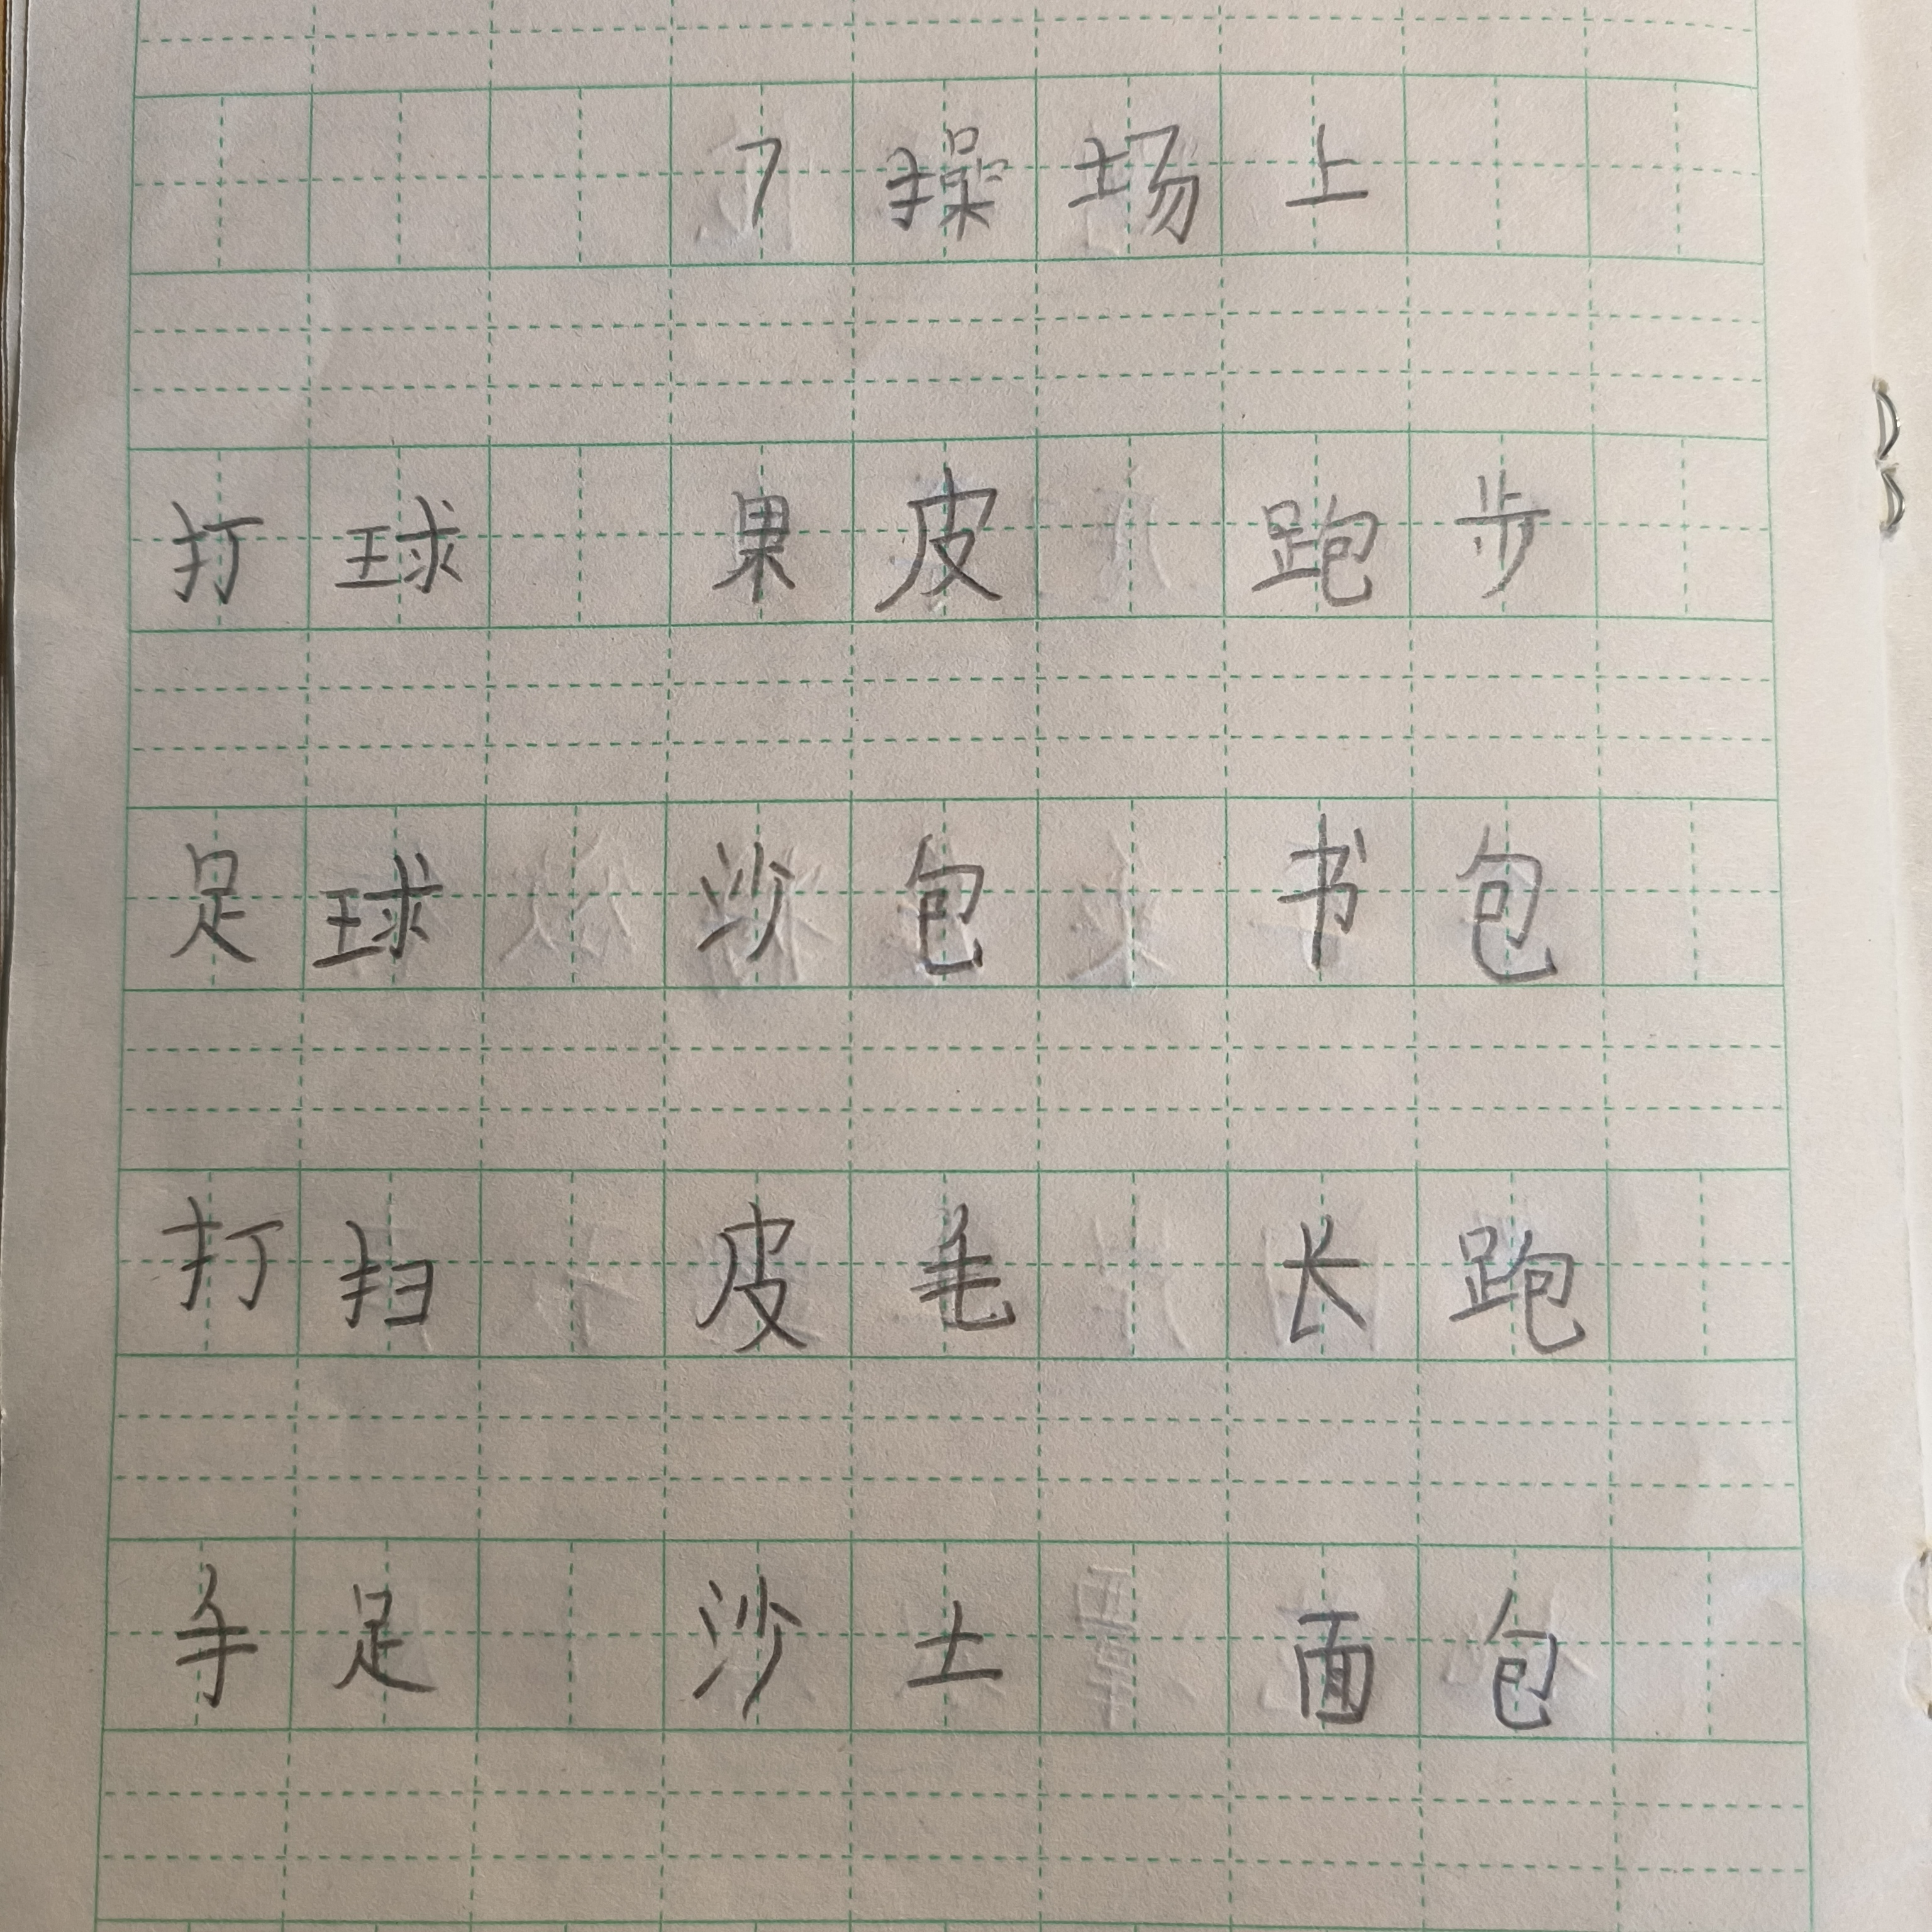 7 操场上
打球 果皮 跑步
足球 沙包 书包
打扫 皮毛 长跑
手足 沙土 面包